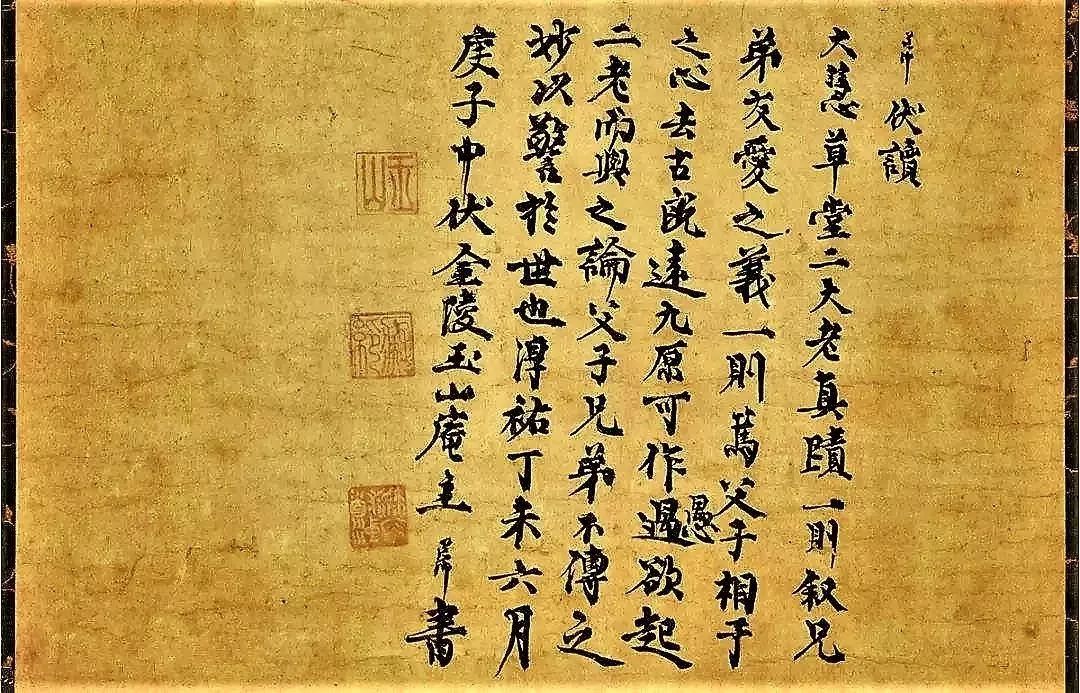 伏讀
大慧草堂二大老真蹟一則叙兄
弟友愛之義一則篤父子相于
之心去古既遠九原可作過愚欲起
二老而與之論父子兄弟不傳之
妙以警於世也淳祐丁未六月
庚子中伏金陵玉山庵主書
玉山